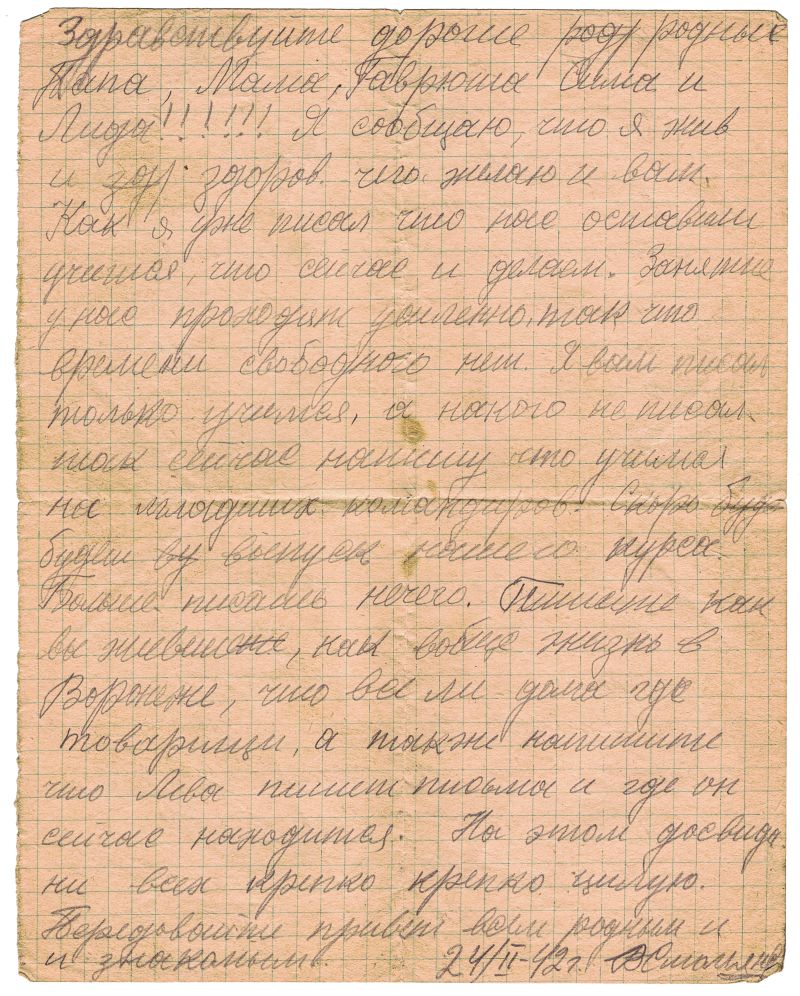 Здравствуйте дорогие род родные
Папа, Мама, Гаврюша Сима и
Лида!!!!!! Я сообщаю, что я жив
и здр здоров. чего желаю и вам.
Как я уже писал что нас оставили
учится, что сейчас и делаем. Занятие
у нас проходят усиленно, так что
времени свободного нет. Я вам писал
только учимся, а накого не писал.
так сейчас напишу что учимся
на младших командиров. Скоро буд
будет ву выпуск нашего курса.
Больше писать нечего. Пишите как
вы живете, как вобще жизнь в
Воронеже, что все ли дома где
товарищи, а также напишите
что Лева пишет письма и где он
сейчас находится. На этом досвида
ни всех крепко крепко цилую.
Передовайте привет всем родным и
и знакомым. 24/II-42г.